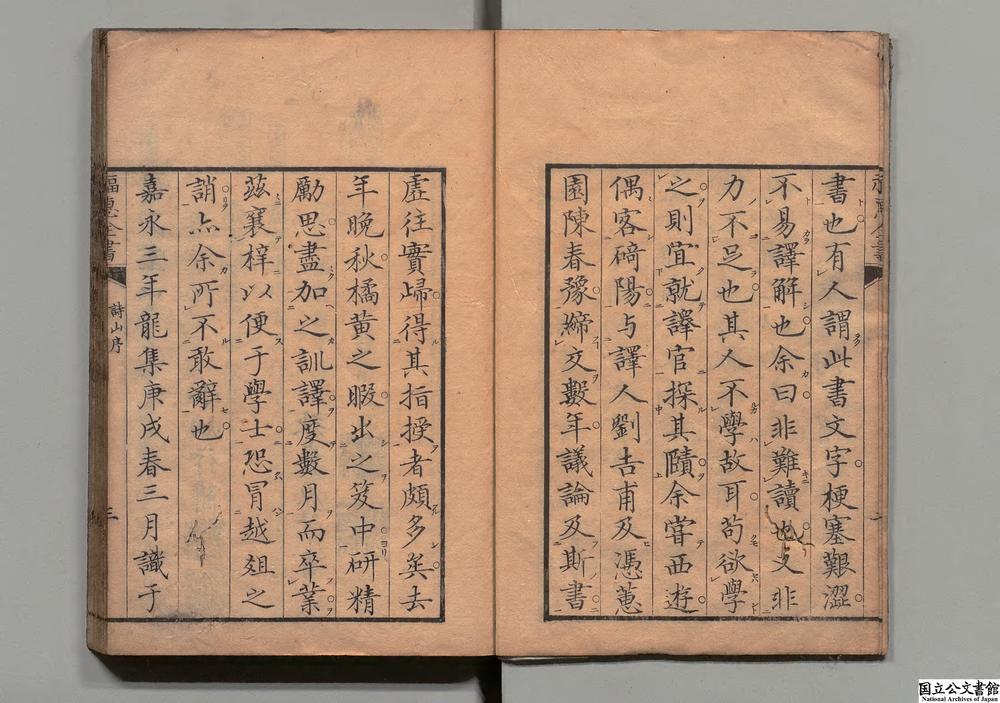 書也有人謂此書文字梗塞艱澀
不易譯解也余曰非難讀也又非
力不足也其人不學故耳苟欲學
之則宜就譯官探其賾余嘗西遊
偶客碕陽与譯人劉吉甫及馮蕙
園陳春豫締文數年議論及斯書
虛往實歸得其指授者頗多矣去
年晚秋橘黃之暇出之笈中研精
勵思盡加之訓譯度數月而卒業
茲襄梓以便于學士恐冒越俎之
誚亦余所不敢辭也
嘉永三年龍集庚戌春三月識于
福惠全書
詩山序
国立公文書館
National Archives of Japan